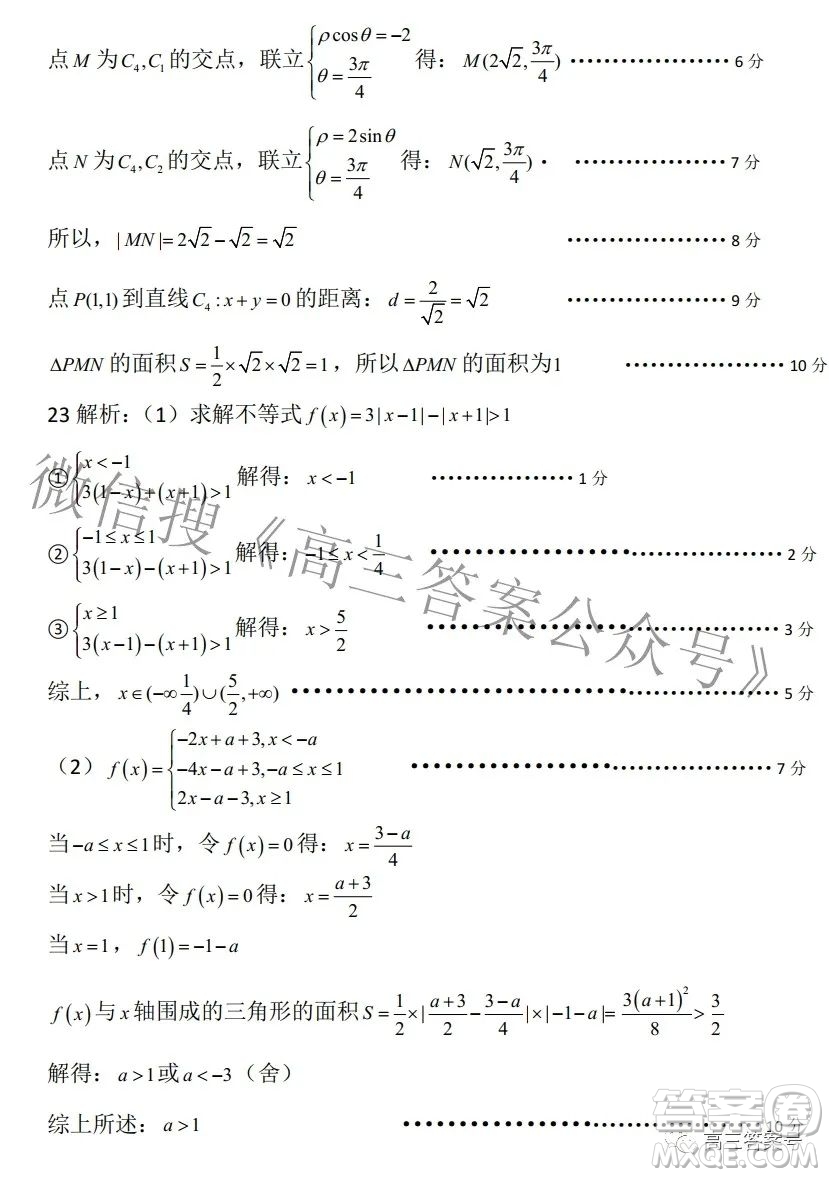 点 M 为 C₄,C₁ 的交点，联立 { ρcosθ=−2, θ=3π/4 得：M(2√2, 3π/4) ………………… 6 分
点 N 为 C₄,C₂ 的交点，联立 { ρ=2sinθ, θ=3π/4 得：N(√2, 3π/4) · ……………… 7 分
所以，|MN|=2√2−√2=√2 ……………… 8 分
点 P(1,1) 到直线 C₄:x+y=0 的距离：d=2/√2=√2 ……………… 9 分
ΔPMN 的面积 S=1/2×√2×√2=1，所以 ΔPMN 的面积为1 ……………… 10 分
23 解析：（1）求解不等式 f(x)=3|x−1|−|x+1|>1
① { x<−1, 3(1−x)+(x+1)>1 解得：x<−1 ……………… 1 分
② { −1≤x≤1, 3(1−x)−(x+1)>1 解得：−1≤x<1/4 ……………… 2 分
③ { x≥1, 3(x−1)−(x+1)>1 解得：x>5/2 ……………… 3 分
综上，x∈(−∞ 1/4)∪(5/2,+∞) ……………… 5 分
（2） f(x)= { −2x+a+3,x<−a −4x−a+3,−a≤x≤1 2x−a−3,x≥1 ……………… 7 分
当 −a≤x≤1 时，令 f(x)=0 得：x=(3−a)/4
当 x>1 时，令 f(x)=0 得：x=(a+3)/2
当 x=1，f(1)=−1−a
f(x) 与 x 轴围成的三角形的面积 S=1/2×|(a+3)/2−(3−a)/4|×|−1−a|=3(a+1)²/8>3/2
解得：a>1 或 a<−3（舍）
综上所述：a>1 ……………… 10 分
微信搜《高三答案公众号》
高三答案号
答案圈
MXQE.COM